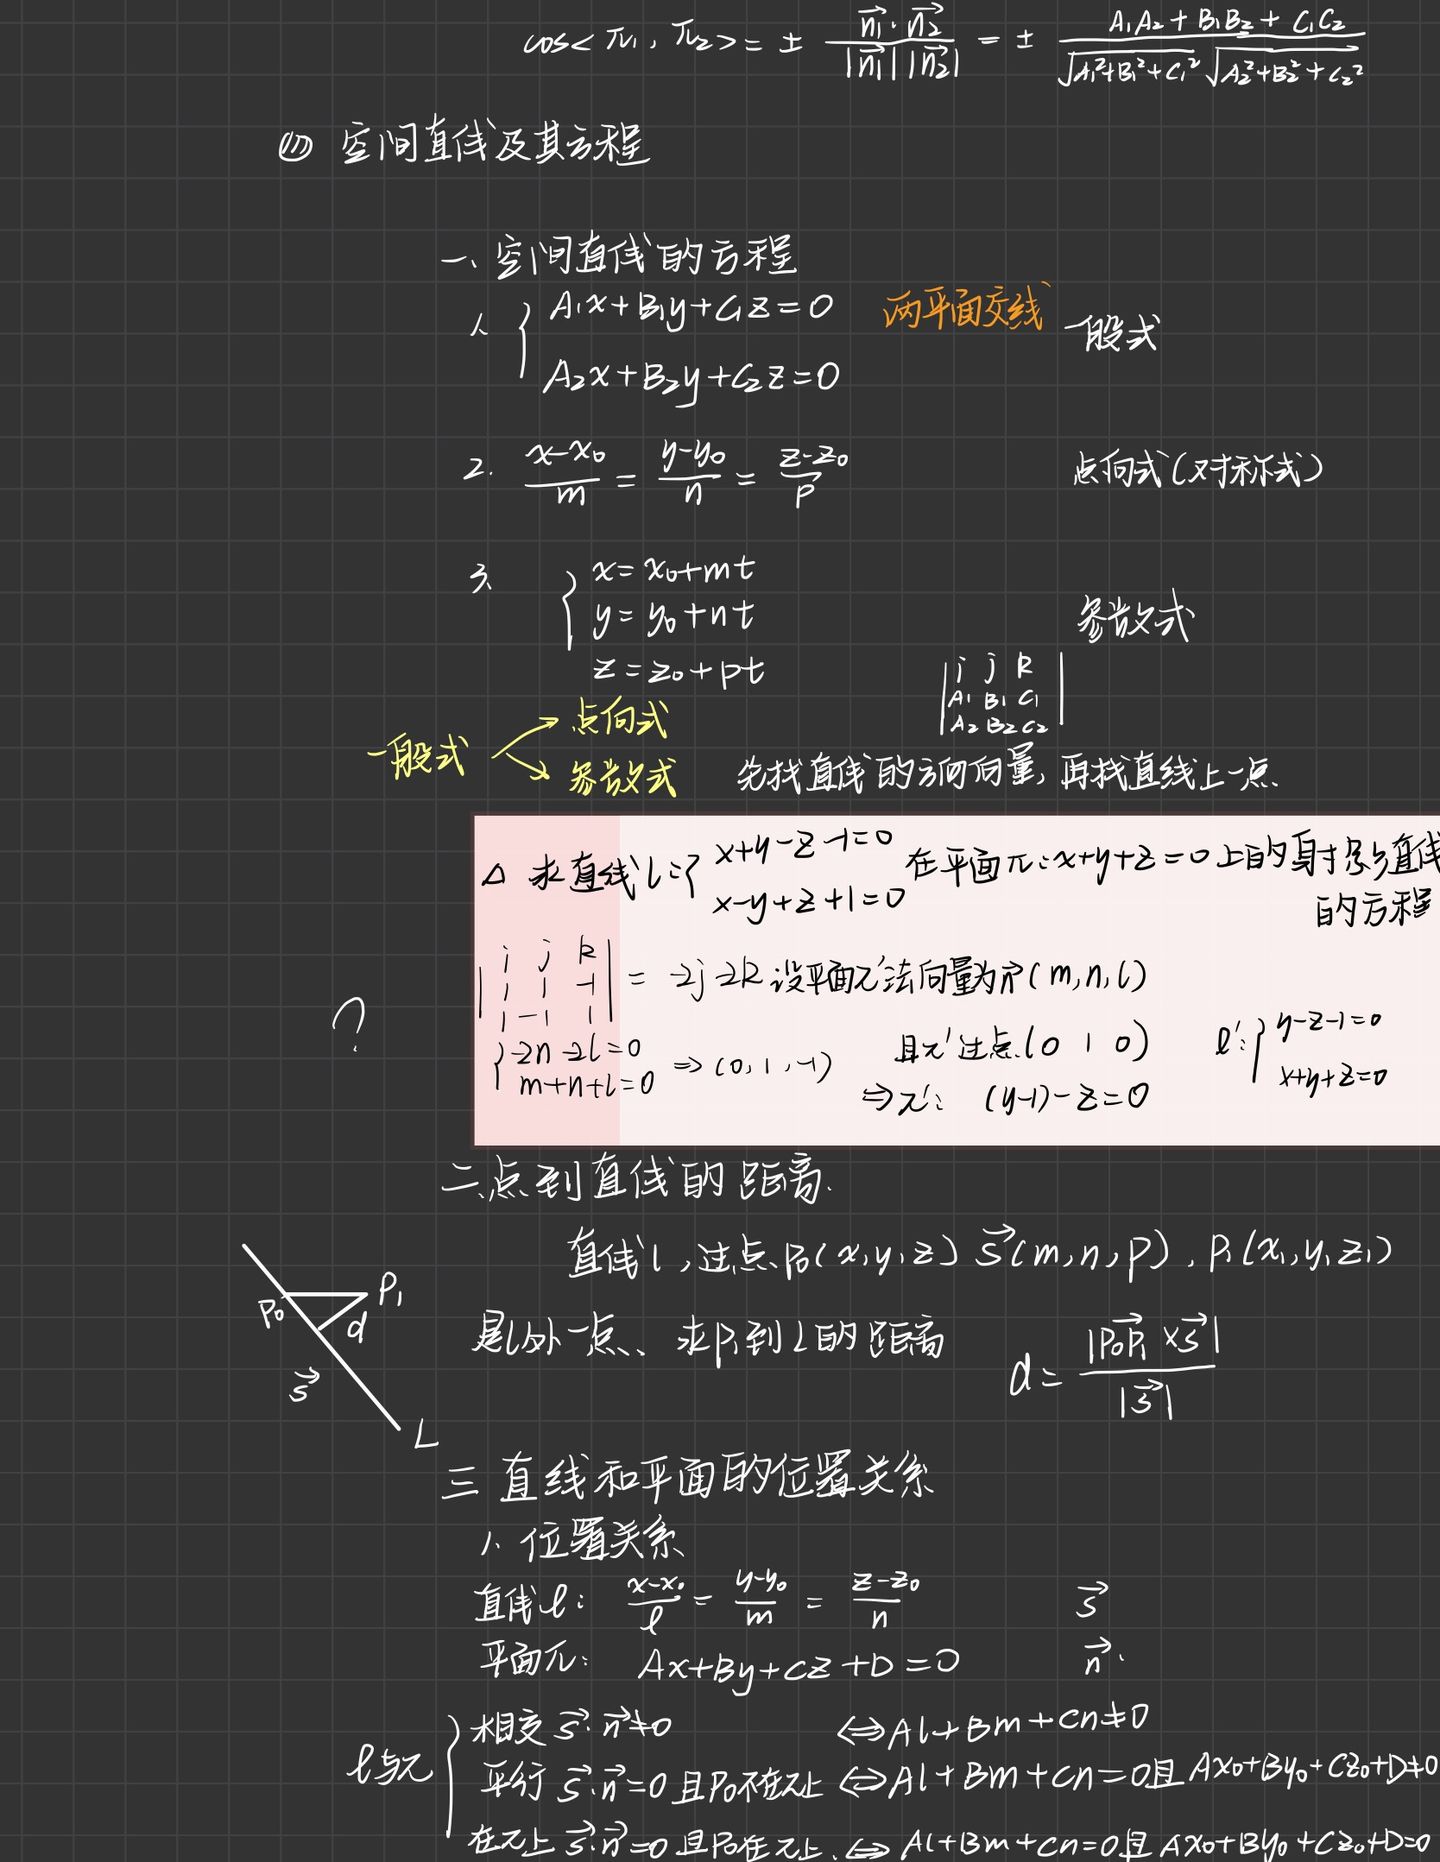 cos<π₁, π₂> = ± (n₁⃗·n₂⃗)/(|n₁⃗||n₂⃗|) = ± (A₁A₂+B₁B₂+C₁C₂)/(√(A₁²+B₁²+C₁²) √(A₂²+B₂²+C₂²))
㈣ 空间直线及其方程
一、空间直线的方程
1. { A₁x+B₁y+C₁z=0 两平面交线 一般式
A₂x+B₂y+C₂z=0
2. (x-x₀)/m = (y-y₀)/n = (z-z₀)/p 点向式(对称式)
3. { x=x₀+mt
y=y₀+nt 参数式
z=z₀+pt
| i j k |
| A₁ B₁ C₁ |
| A₂ B₂ C₂ |
一般式 → 点向式
→ 参数式 先找直线的方向向量,再找直线上一点.
△ 求直线l:{ x+y-z-1=0 在平面π:x+y+z=0上的射影直线
x-y+z+1=0 的方程
| i j k |
| 1 1 -1 | = -2j-2k 设平面π′法向量为n⃗(m,n,l)
| 1 -1 1 |
?
{ -2n-2l=0
m+n+l=0 ⇒ (0,1,-1) 且π′过点(0 1 0)
⇒π′: (y-1)-z=0
l′:{ y-z-1=0
x+y+z=0
二.点到直线的距离.
直线l,过点P₀(x,y,z) s⃗(m,n,p), P₁(x₁,y₁,z₁)
是l外一点、求P₁到L的距离 d= |P₀P₁⃗×s⃗|/|s⃗|
P₀ P₁ d s⃗ L
三 直线和平面的位置关系
1. 位置关系
直线l: (x-x₀)/l = (y-y₀)/m = (z-z₀)/n s⃗
平面π: Ax+By+Cz+D=0 n⃗.
l与π { 相交 s⃗·n⃗≠0 ⇔Al+Bm+Cn≠0
平行 s⃗·n⃗=0 且P₀不在π上 ⇔Al+Bm+Cn=0且Ax₀+By₀+Cz₀+D≠0
在π上 s⃗·n⃗=0 且P₀在π上. ⇔ Al+Bm+Cn=0且Ax₀+By₀+Cz₀+D=0